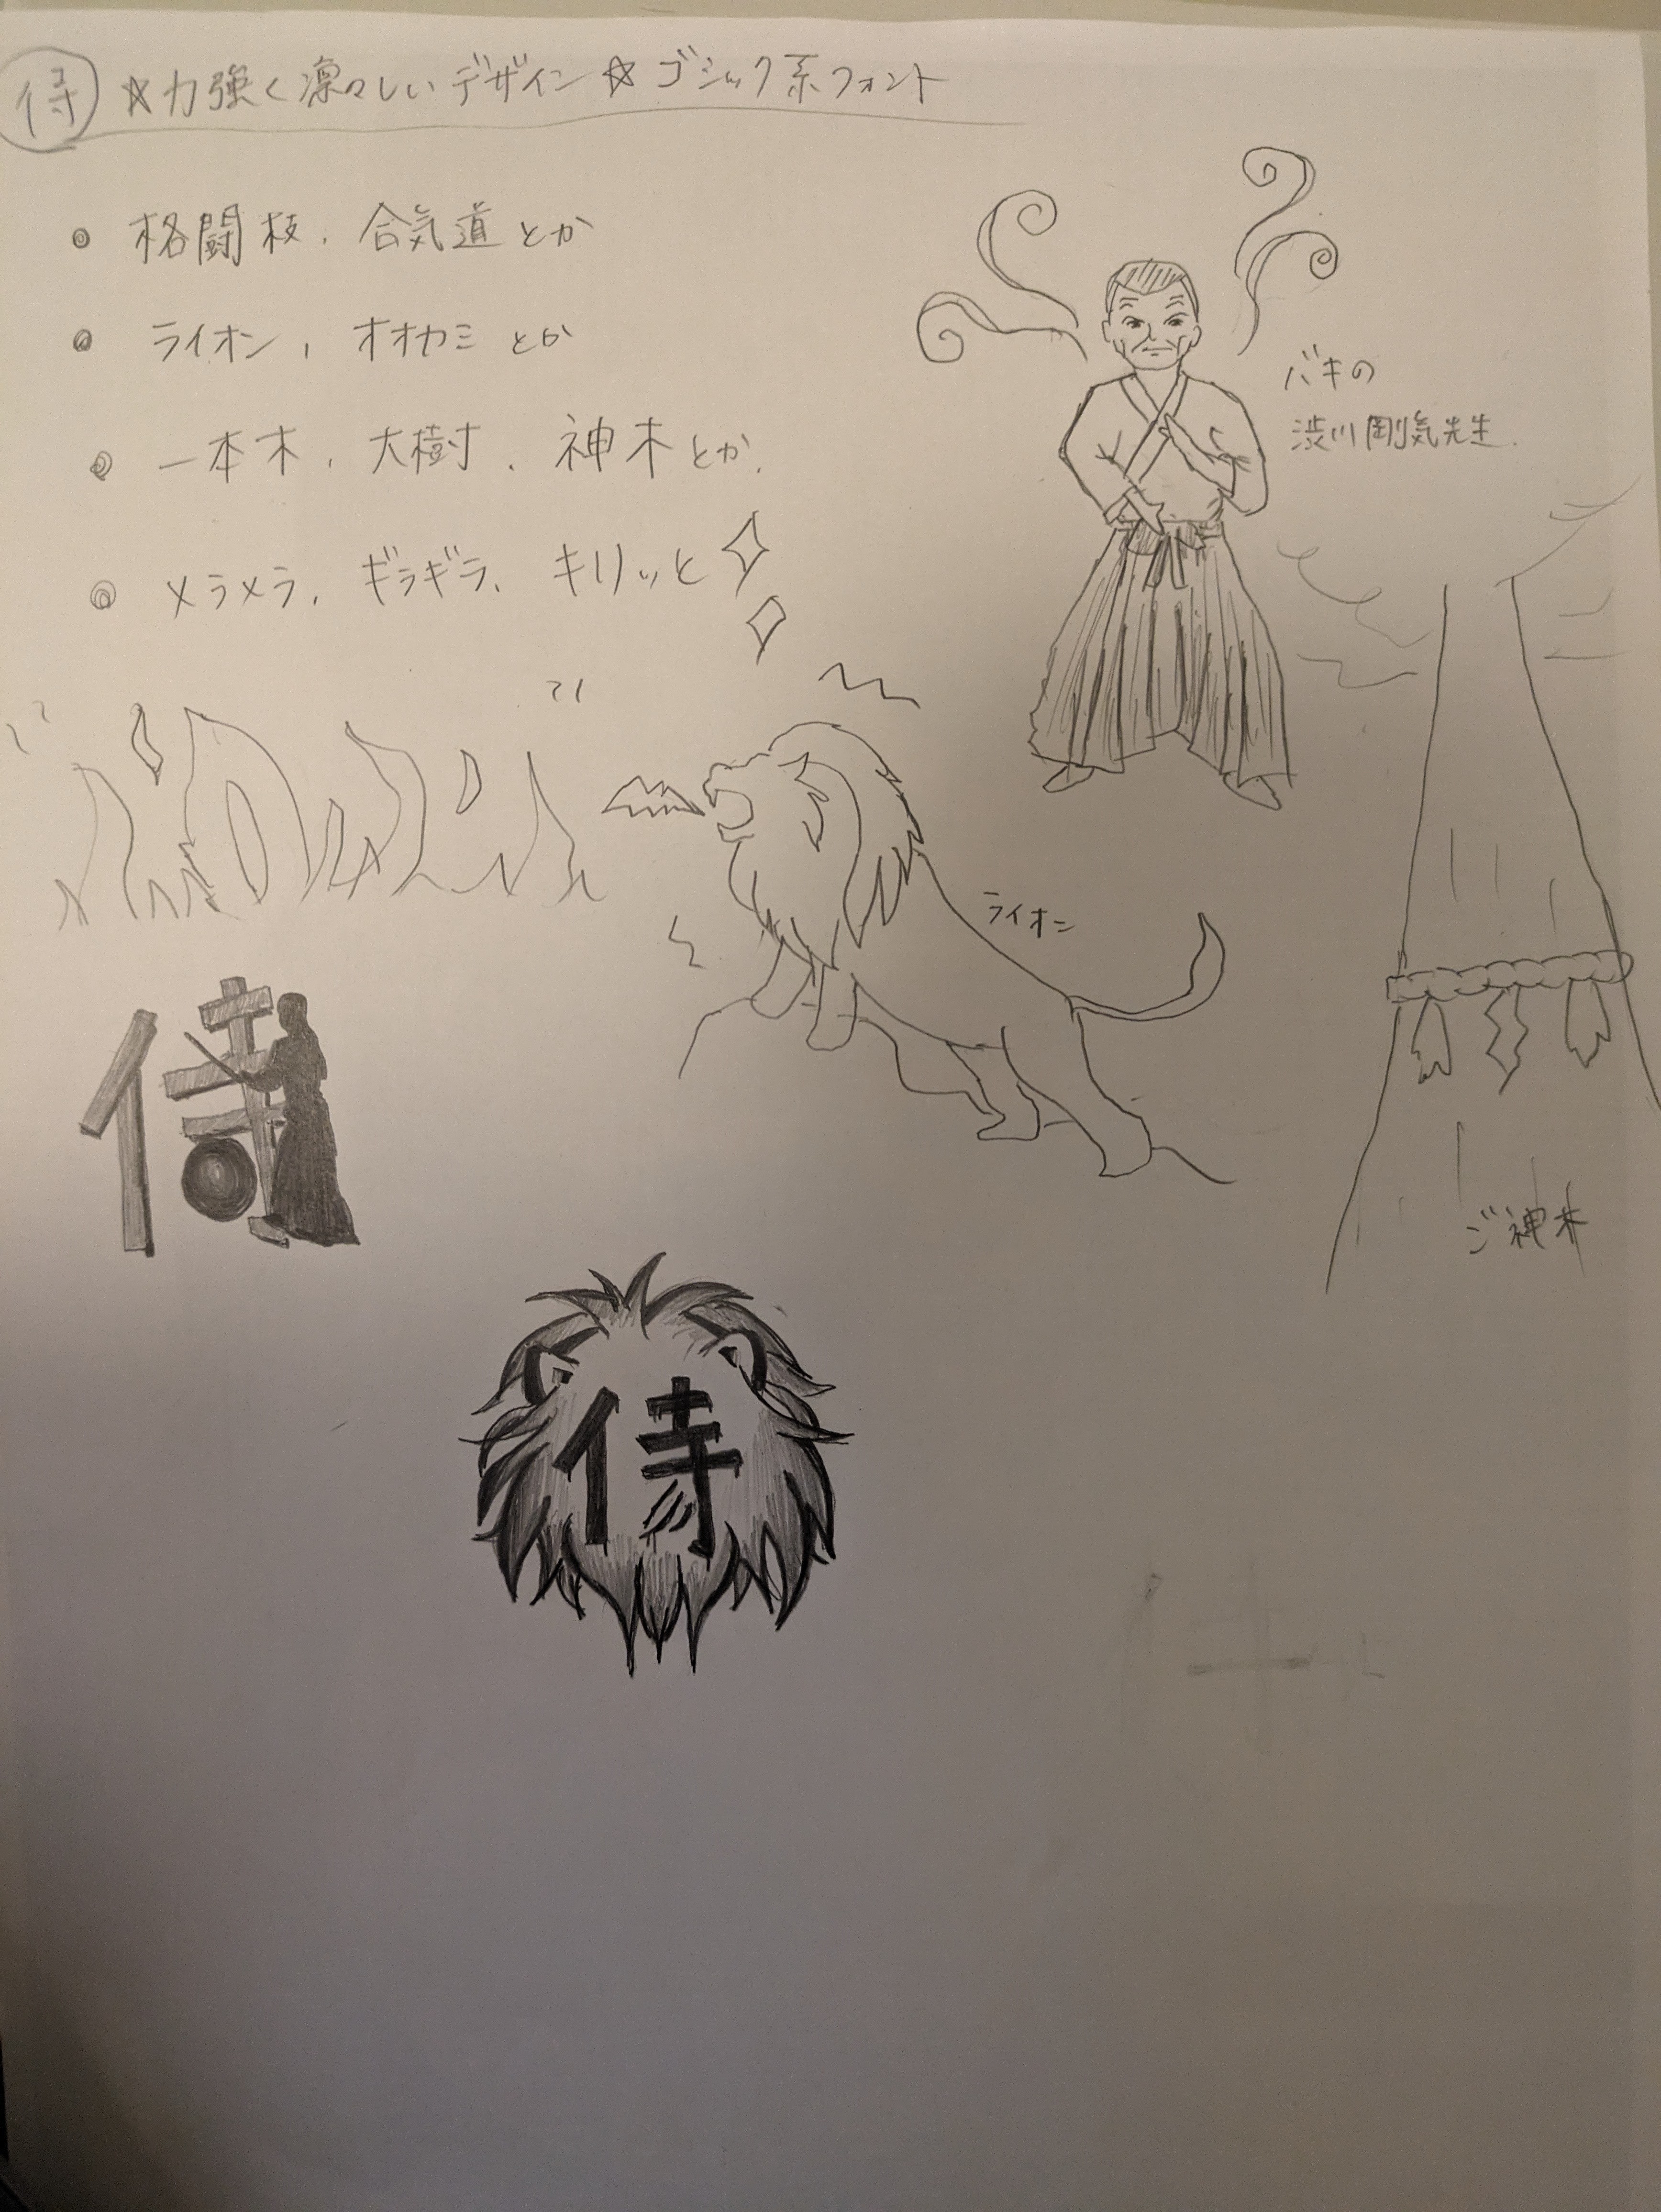 侍 ☆力強く凛々しいデザイン☆ゴシック系フォント
格闘技、合気道とか
ライオン、オオカミとか
一本木、大樹、神木とか、
メラメラ、ギラギラ、キリッと
バキの
渋川剛気先生
ライオン
ご神木
侍
侍